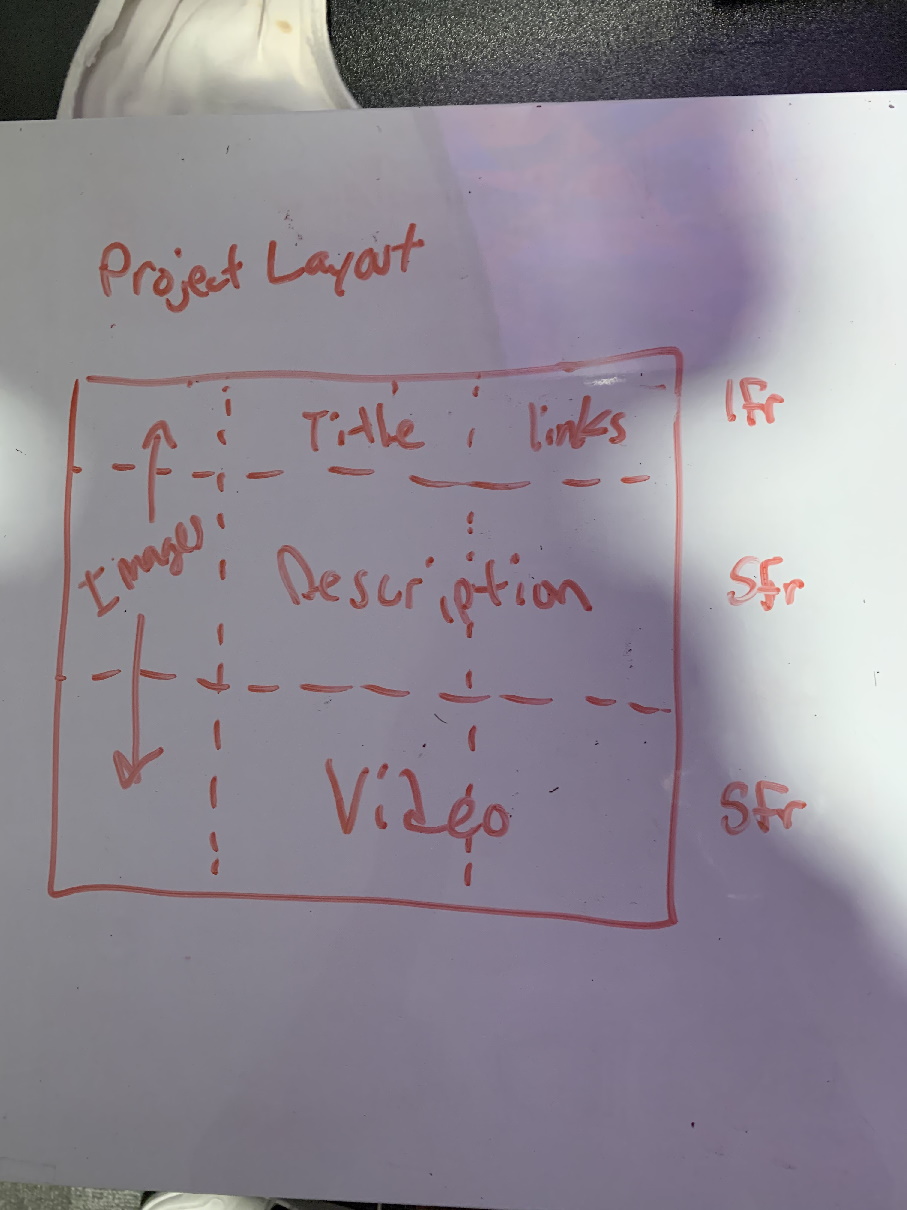 Project Layout
Title links 1fr
Images Description 5fr
Video 5fr